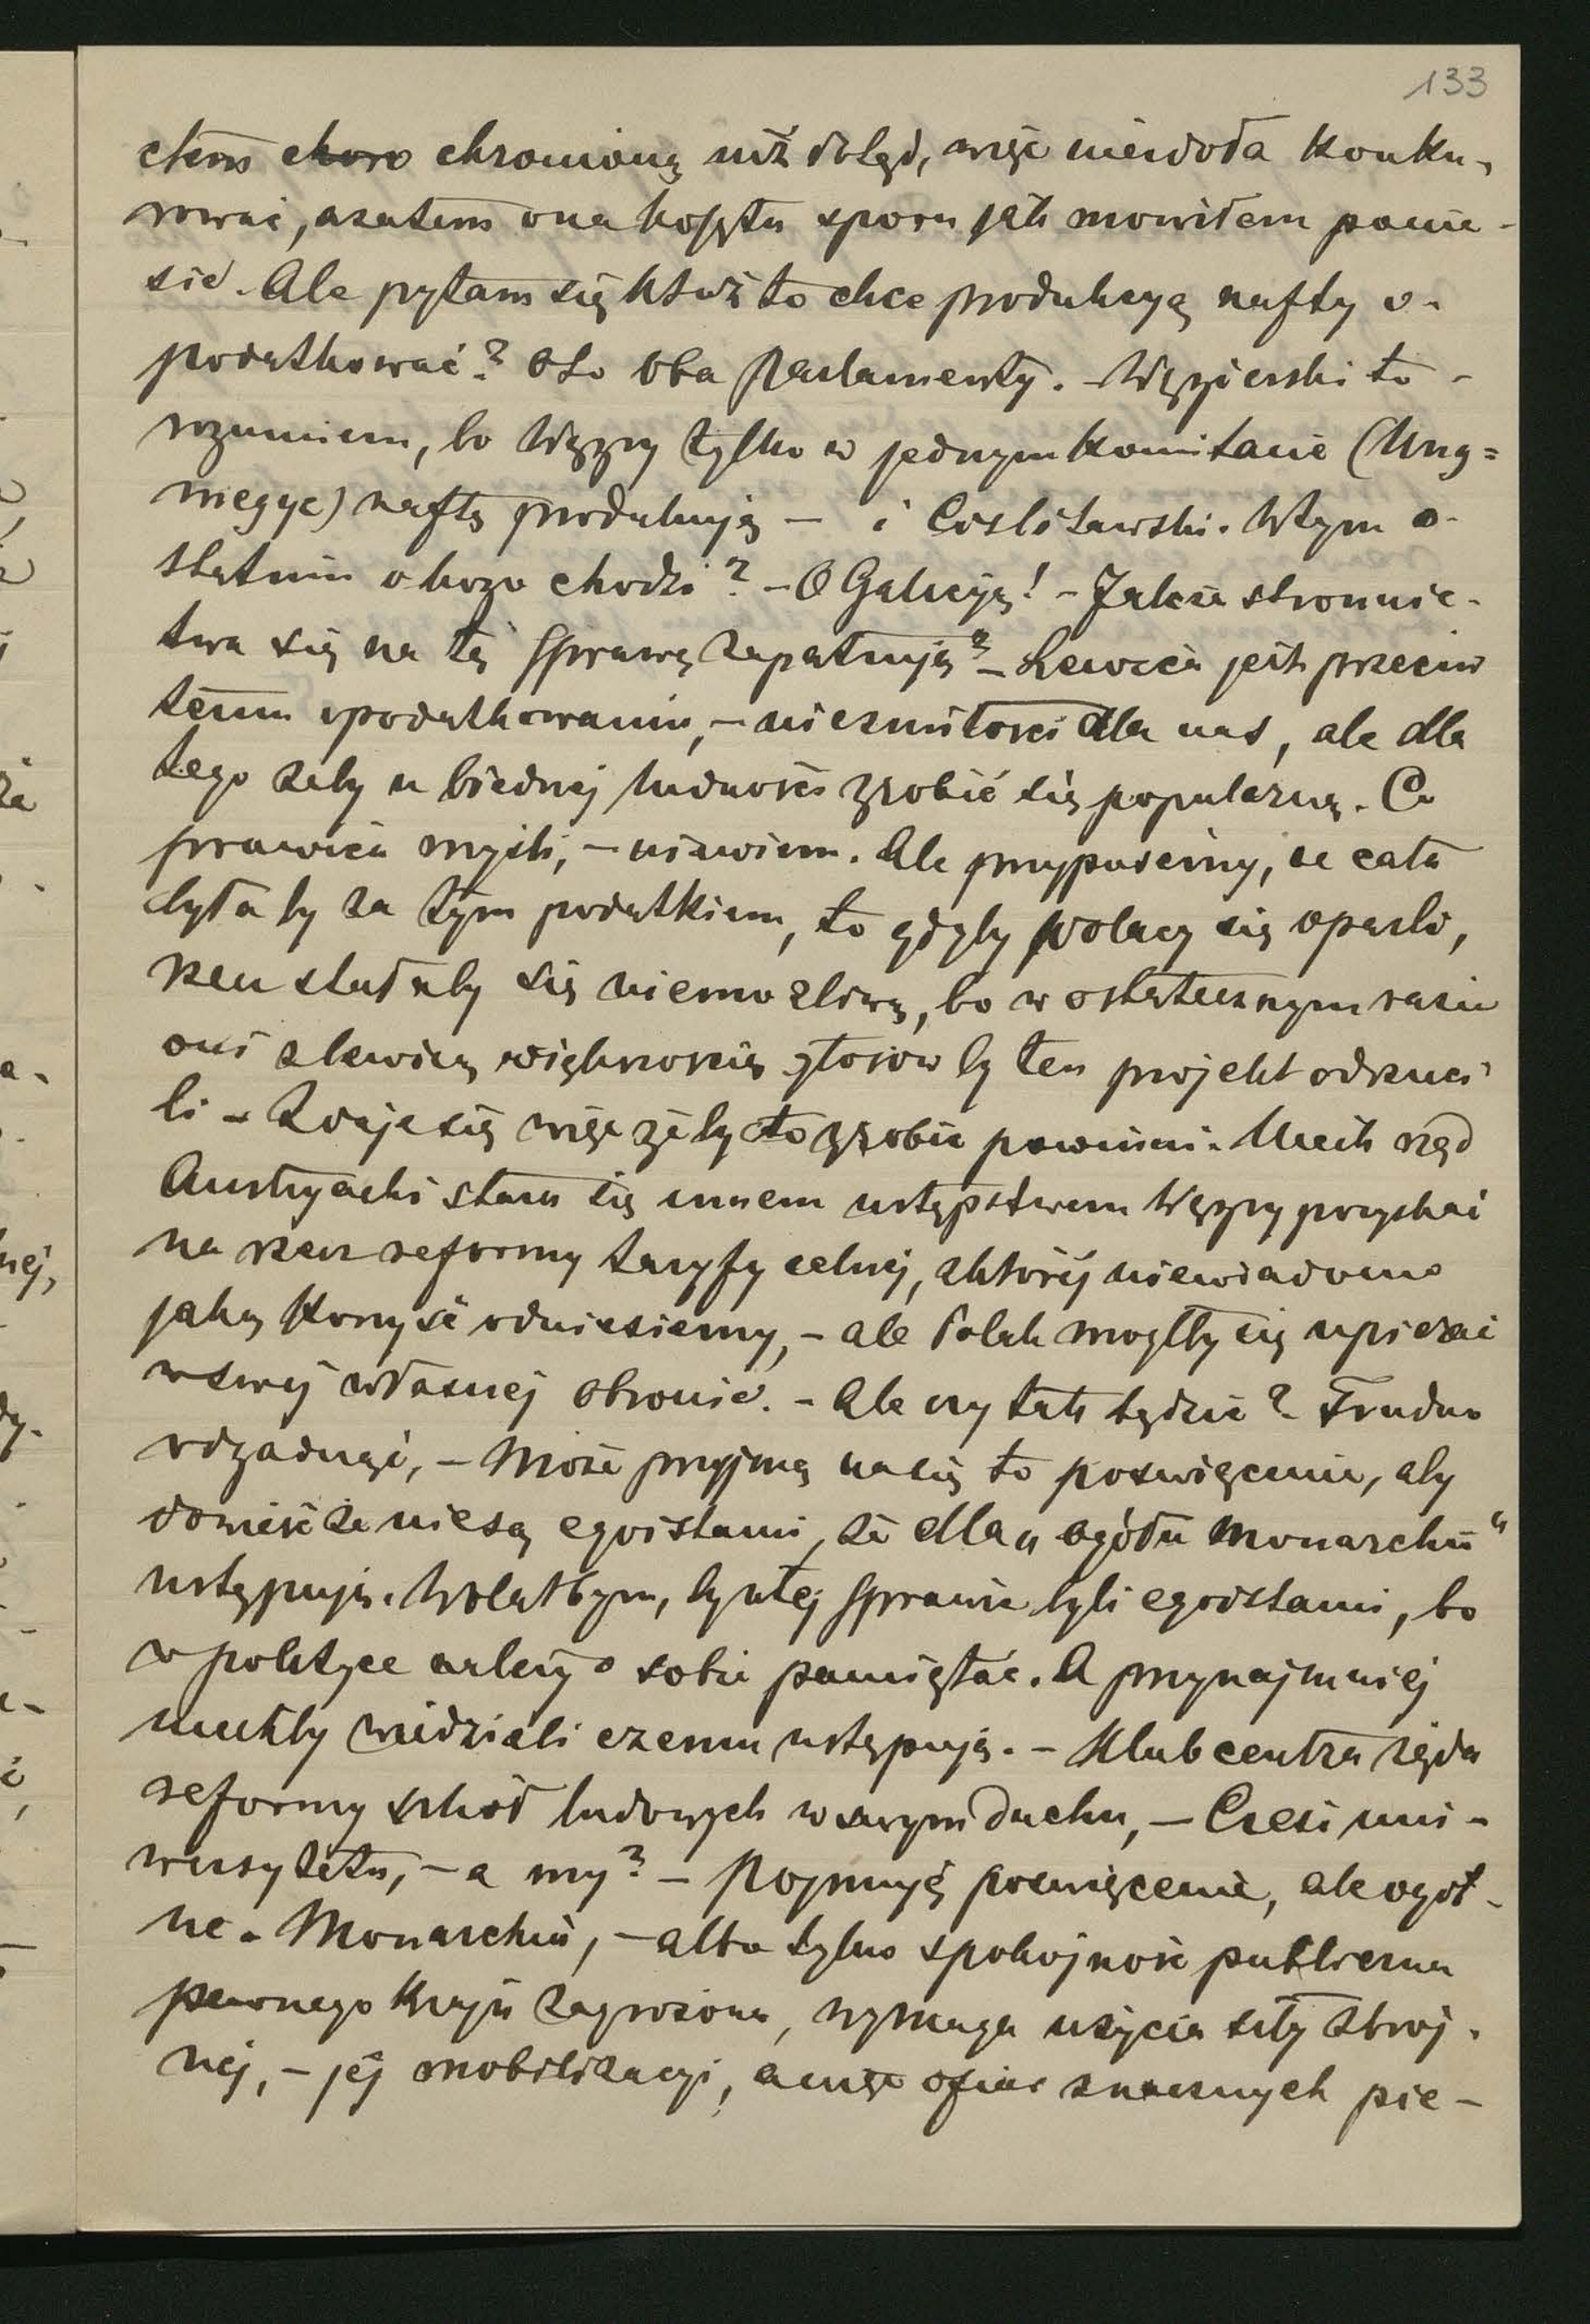 133
ctem choro chronioną niż dotąd, więc niewoła konku-
rować, azatem ona kosztu sporu jak mowiłem ponie-
sie. Ale pytam się któż to chce produkcyą nafty o-
podatkować? Oto oba Parlamenty. – Węgierski to –
rozumiem, bo Węgry tylko w jednym Komitacie (Ung=
megye) naftę produkują – i Cislitawski. W tym o-
statnim o kogo chodzi? – O Galicyą! – Jakże stronnic-
twa się na tę sprawę zapatrują? – Lewica jest przeciw
temu opodatkowaniu, – nie z miłości dla nas, ale dla
tego żeby u biednej ludności zrobić się popularną. Co
prawica myśli, – nie wiem. Ale przypuśćmy, że cała
byłaby za tym podatkiem, to gdyby Polacy się oparli,
rzecz stałaby się niemożliwą, bo w ostatecznym razie
oni z lewicą większością głosów by ten projekt odrzuci
li – Zdaje się więc żeby to zrobić powinni. Niech rząd
Austryacki stara się innem ustępstwem Węgry pozyskać
na rzecz reformy taryfy celnej, z której niewiadomo
jaką korzyść odniesiemy, – ale Polak mógłby się upierać
w swej własnej obronie. – Ale czy tak będzie? Trudno
odgadnąć, – Może przyjmą na się to poświęcenie, aby
dowieść że nie są egoistami, że dla „ogółu Monarchii“
ustępują. Wolałbym, by w tej sprawie byli egoistami, bo
w polityce należy o sobie pamiętać. A przynajmniej
niechby wiedzieli czemu ustępują. – Klub centra żąda
reformy szkół ludowych w swym duchu, – Czesi uni-
wersytetu, – a my? – Pojmuję poświęcenie, ale ogól-
ne. Monarchia, – albo tylko spokojność publiczna
pewnego Kraju zagrożona, wymaga użycia siły zbroj-
nej, – jej mobilizacyi, a więc ofiar znacznych pie-